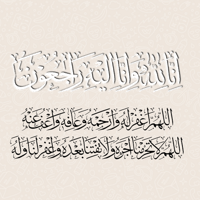 إنا لله وإنا إليه راجعون
اللهم اغفر له وارحمه وعافه واعف عنه
اللهم لا تحرمنا أجره ولا تفتنا بعده واغفر لنا وله